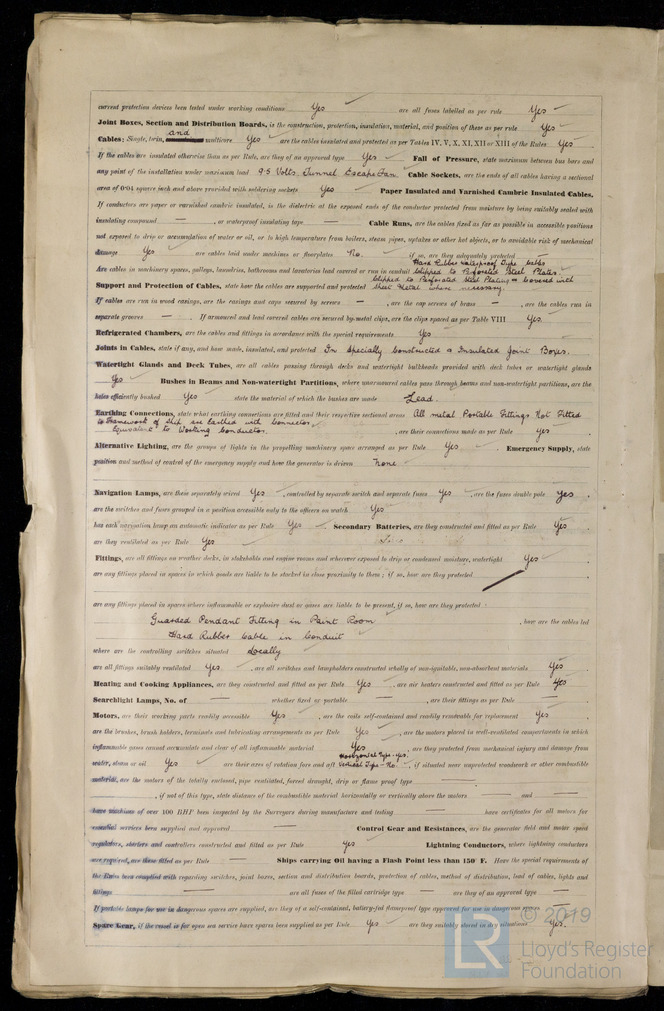 current protection devices been tested under working conditions Yes are all fuses labelled as per rule Yes
Joint Boxes, Section and Distribution Boards, is the construction, protection, insulation, material, and position of these as per rule Yes
and
Cables: Single, twin, multicore Yes are the cables insulated and protected as per Tables IV, V, X, XI, XII or XIII of the Rules Yes
If the cables are insulated otherwise than as per Rule, are they of an approved type Yes Fall of Pressure, state maximum between bus bars and
any point of the installation under maximum load 9.5 Volts. Tunnel Escape Fan. Cable Sockets, are the ends of all cables having a sectional
area of 0.04 square inch and above provided with soldering sockets Yes Paper Insulated and Varnished Cambric Insulated Cables.
If conductors are paper or varnished cambric insulated, is the dielectric at the exposed ends of the conductor protected from moisture by being suitably sealed with
insulating compound — , or waterproof insulating tape — Cable Runs, are the cables fixed as far as possible in accessible positions
not exposed to drip or accumulation of water or oil, or to high temperature from boilers, steam pipes, uptakes or other hot objects, or to avoidable risk of mechanical
damage Yes are cables laid under machines or floorplates No. if so, are they adequately protected
Hard Rubber Waterproof Type Cables
Are cables in machinery spaces, galleys, laundries, bathrooms and lavatories lead covered or run in conduit Clipped to Perforated Steel Plates.
Clipped to Perforated Steel Plating & Covered with
Support and Protection of Cables, state how the cables are supported and protected Sheet Metal where necessary.
If cables are run in wood casings, are the casings and caps secured by screws — , are the cap screws of brass — , are the cables run in
separate grooves — . If armoured and lead covered cables are secured by metal clips, are the clips spaced as per Table VIII Yes.
Refrigerated Chambers, are the cables and fittings in accordance with the special requirements Yes
Joints in Cables, state if any, and how made, insulated, and protected In Specially Constructed & Insulated Joint Boxes.
Watertight Glands and Deck Tubes, are all cables passing through decks and watertight bulkheads provided with deck tubes or watertight glands
Yes Bushes in Beams and Non-watertight Partitions, where unarmoured cables pass through beams and non-watertight partitions, are the
holes efficiently bushed Yes state the material of which the bushes are made Lead.
Earthing Connections, state what earthing connections are fitted and their respective sectional areas All metal Portable Fittings Not Fitted
to Framework of Ship are Earthed with Connector
Equivalent to Working Conductor. , are their connections made as per Rule Yes
Alternative Lighting, are the groups of lights in the propelling machinery space arranged as per Rule Yes Emergency Supply, state
position and method of control of the emergency supply and how the generator is driven None
Navigation Lamps, are these separately wired Yes , controlled by separate switch and separate fuses Yes , are the fuses double pole Yes
are the switches and fuses grouped in a position accessible only to the officers on watch Yes
has each navigation lamp an automatic indicator as per Rule Yes . Secondary Batteries, are they constructed and fitted as per Rule Yes
are they ventilated as per Rule Yes
Fittings, are all fittings on weather decks, in stokeholds and engine rooms and wherever exposed to drip or condensed moisture, watertight Yes
are any fittings placed in spaces in which goods are liable to be stacked in close proximity to them; if so, how are they protected
are any fittings placed in spaces where inflammable or explosive dust or gases are liable to be present, if so, how are they protected
Guarded Pendant Fitting in Paint Room , how are the cables led
Hard Rubber Cable in Conduit
where are the controlling switches situated Locally
are all fittings suitably ventilated Yes. , are all switches and lampholders constructed wholly of non-ignitable, non-absorbent materials Yes
Heating and Cooking Appliances, are they constructed and fitted as per Rule Yes , are air heaters constructed and fitted as per Rule Yes
Searchlight Lamps, No. of — whether fixed or portable — , are their fittings as per Rule —
Motors, are their working parts readily accessible Yes , are the coils self-contained and readily removable for replacement Yes
are the brushes, brush holders, terminals and lubricating arrangements as per Rule Yes , are the motors placed in well-ventilated compartments in which
inflammable gases cannot accumulate and clear of all inflammable material Yes , are they protected from mechanical injury and damage from
Horizontal Type - Yes.
water, steam or oil Yes are their axes of rotation fore and aft Vertical Type - No. , if situated near unprotected woodwork or other combustible
material, are the motors of the totally enclosed, pipe ventilated, forced draught, drip or flame proof type —
, if not of this type, state distance of the combustible material horizontally or vertically above the motors — and —
have machines of over 100 BHP been inspected by the Surveyors during manufacture and testing — have certificates for all motors for
essential services been supplied and approved — Control Gear and Resistances, are the generator field and motor speed
regulators, starters and controllers constructed and fitted as per Rule Yes Lightning Conductors, where lightning conductors
are required, are these fitted as per Rule — Ships carrying Oil having a Flash Point less than 150° F. Have the special requirements of
the Rules been complied with regarding switches, joint boxes, section and distribution boards, protection of cables, method of distribution, lead of cables, lights and
fittings — are all fuses of the filled cartridge type — are they of an approved type —
If portable lamps for use in dangerous spaces are supplied, are they of a self-contained, battery-fed flameproof type approved for use in dangerous spaces —
Spare Gear, if the vessel is for open sea service have spares been supplied as per Rule Yes are they suitably stored in dry situations Yes.
© 2019
LR
Lloyd's Register
Foundation